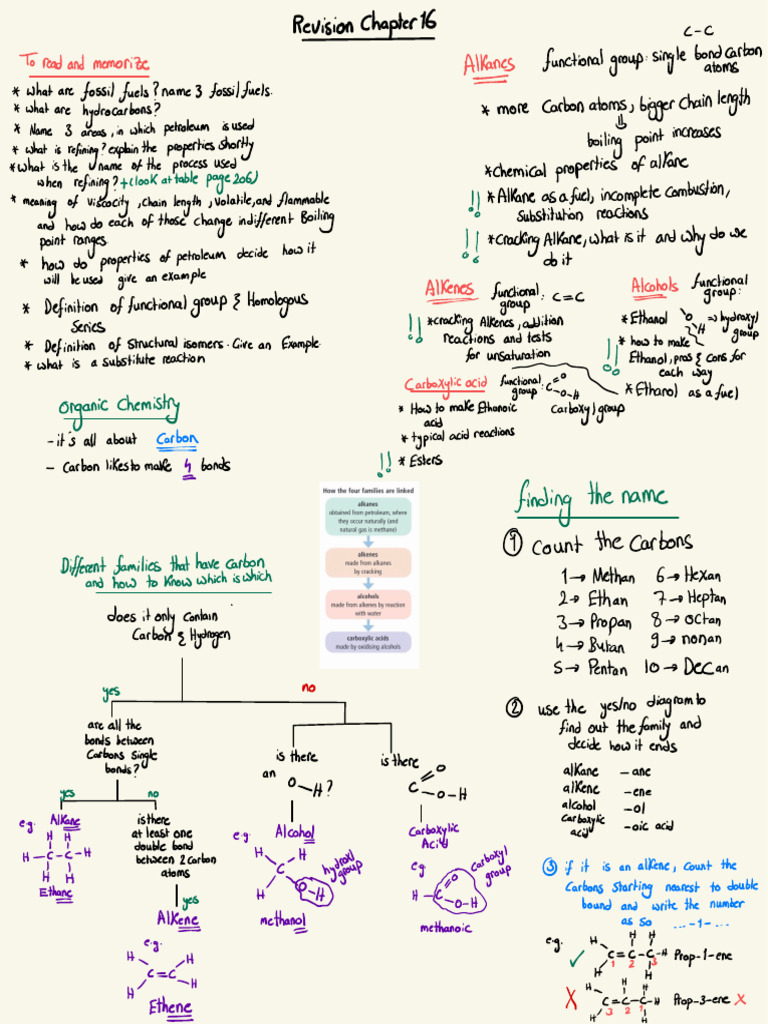 Revision Chapter 16
To read and memorize
* what are fossil fuels? name 3 fossil fuels.
* what are hydrocarbons?
* Name 3 areas, in which petroleum is used
* what is refining? explain the properties shortly
* what is the name of the process used
when refining? + (look at table page 206)
* meaning of viscocity, chain length, volatile, and flammable
and how do each of those change in different Boiling
point ranges
* how do properties of petroleum decide how it
will be used give an example
* Definition of functional group & Homologous
Series
* Definition of structural isomers. Give an Example
* what is a substitute reaction
Alkanes
functional group: single bond carbon
atoms
C-C
* more Carbon atoms, bigger chain length
⇓
boiling point increases
* chemical properties of alkane
!! * Alkane as a fuel, incomplete combustion,
substitution reactions
!! * cracking Alkane, what is it and why do we
do it
Alkenes
functional
group: C=C
!! * cracking Alkenes, addition
reactions and tests
for unsaturation
Alcohols
functional
group:
* Ethanol O H ⇒ hydroxyl
group
!! * how to make
Ethanol, pros & cons for
each way
* Ethanol as a fuel
Carboxylic acid
functional
group: C O O-H
Carboxyl group
* How to make Ethanoic
acid
* typical acid reactions
!! * Esters
organic chemistry
- it's all about Carbon
- Carbon likes to make 4 bonds
How the four families are linked
alkanes
obtained from petroleum, where
they occur naturally (and
natural gas is methane)
alkenes
made from alkanes
by cracking
alcohols
made from alkenes by reaction
with water
carboxylic acids
made by oxidising alcohols
Different families that have carbon
and how to know which is which
does it only contain
Carbon & Hydrogen
yes
no
are all the
bonds between
Carbons single
bonds?
yes
no
e.g. Alkane
H H
H-C-C-H
H H
Ethane
is there
at least one
double bond
between 2 carbon
atoms
yes
Alkene
e.g.
H H
C=C
H H
Ethene
is there
an
O-H?
Alcohol
e.g.
H H
C
H O-H
hydroxyl
group
methanol
is there
O
C O-H
Carboxylic
Acid
e.g.
Carboxyl
group
O
H-C O-H
methanoic
finding the name
① count the Carbons
1→ Methan 6→ Hexan
2→ Ethan 7→ Heptan
3→ Propan 8→ octan
4→ Butan 9→ nonan
5→ Pentan 10→ Decan
② use the yes/no diagram to
find out the family and
decide how it ends
alkane -ane
alkene -ene
alcohol -ol
carboxylic
acid -oic acid
③ if it is an alkene, count the
Carbons starting nearest to double
bound and write the number
as so ...-1-...
e.g.
✓ H H H
C=C-C-H Prop-1-ene
1 2 3
H H
X H H H
C=C-C-H Prop-3-ene X
3 2 1
H H